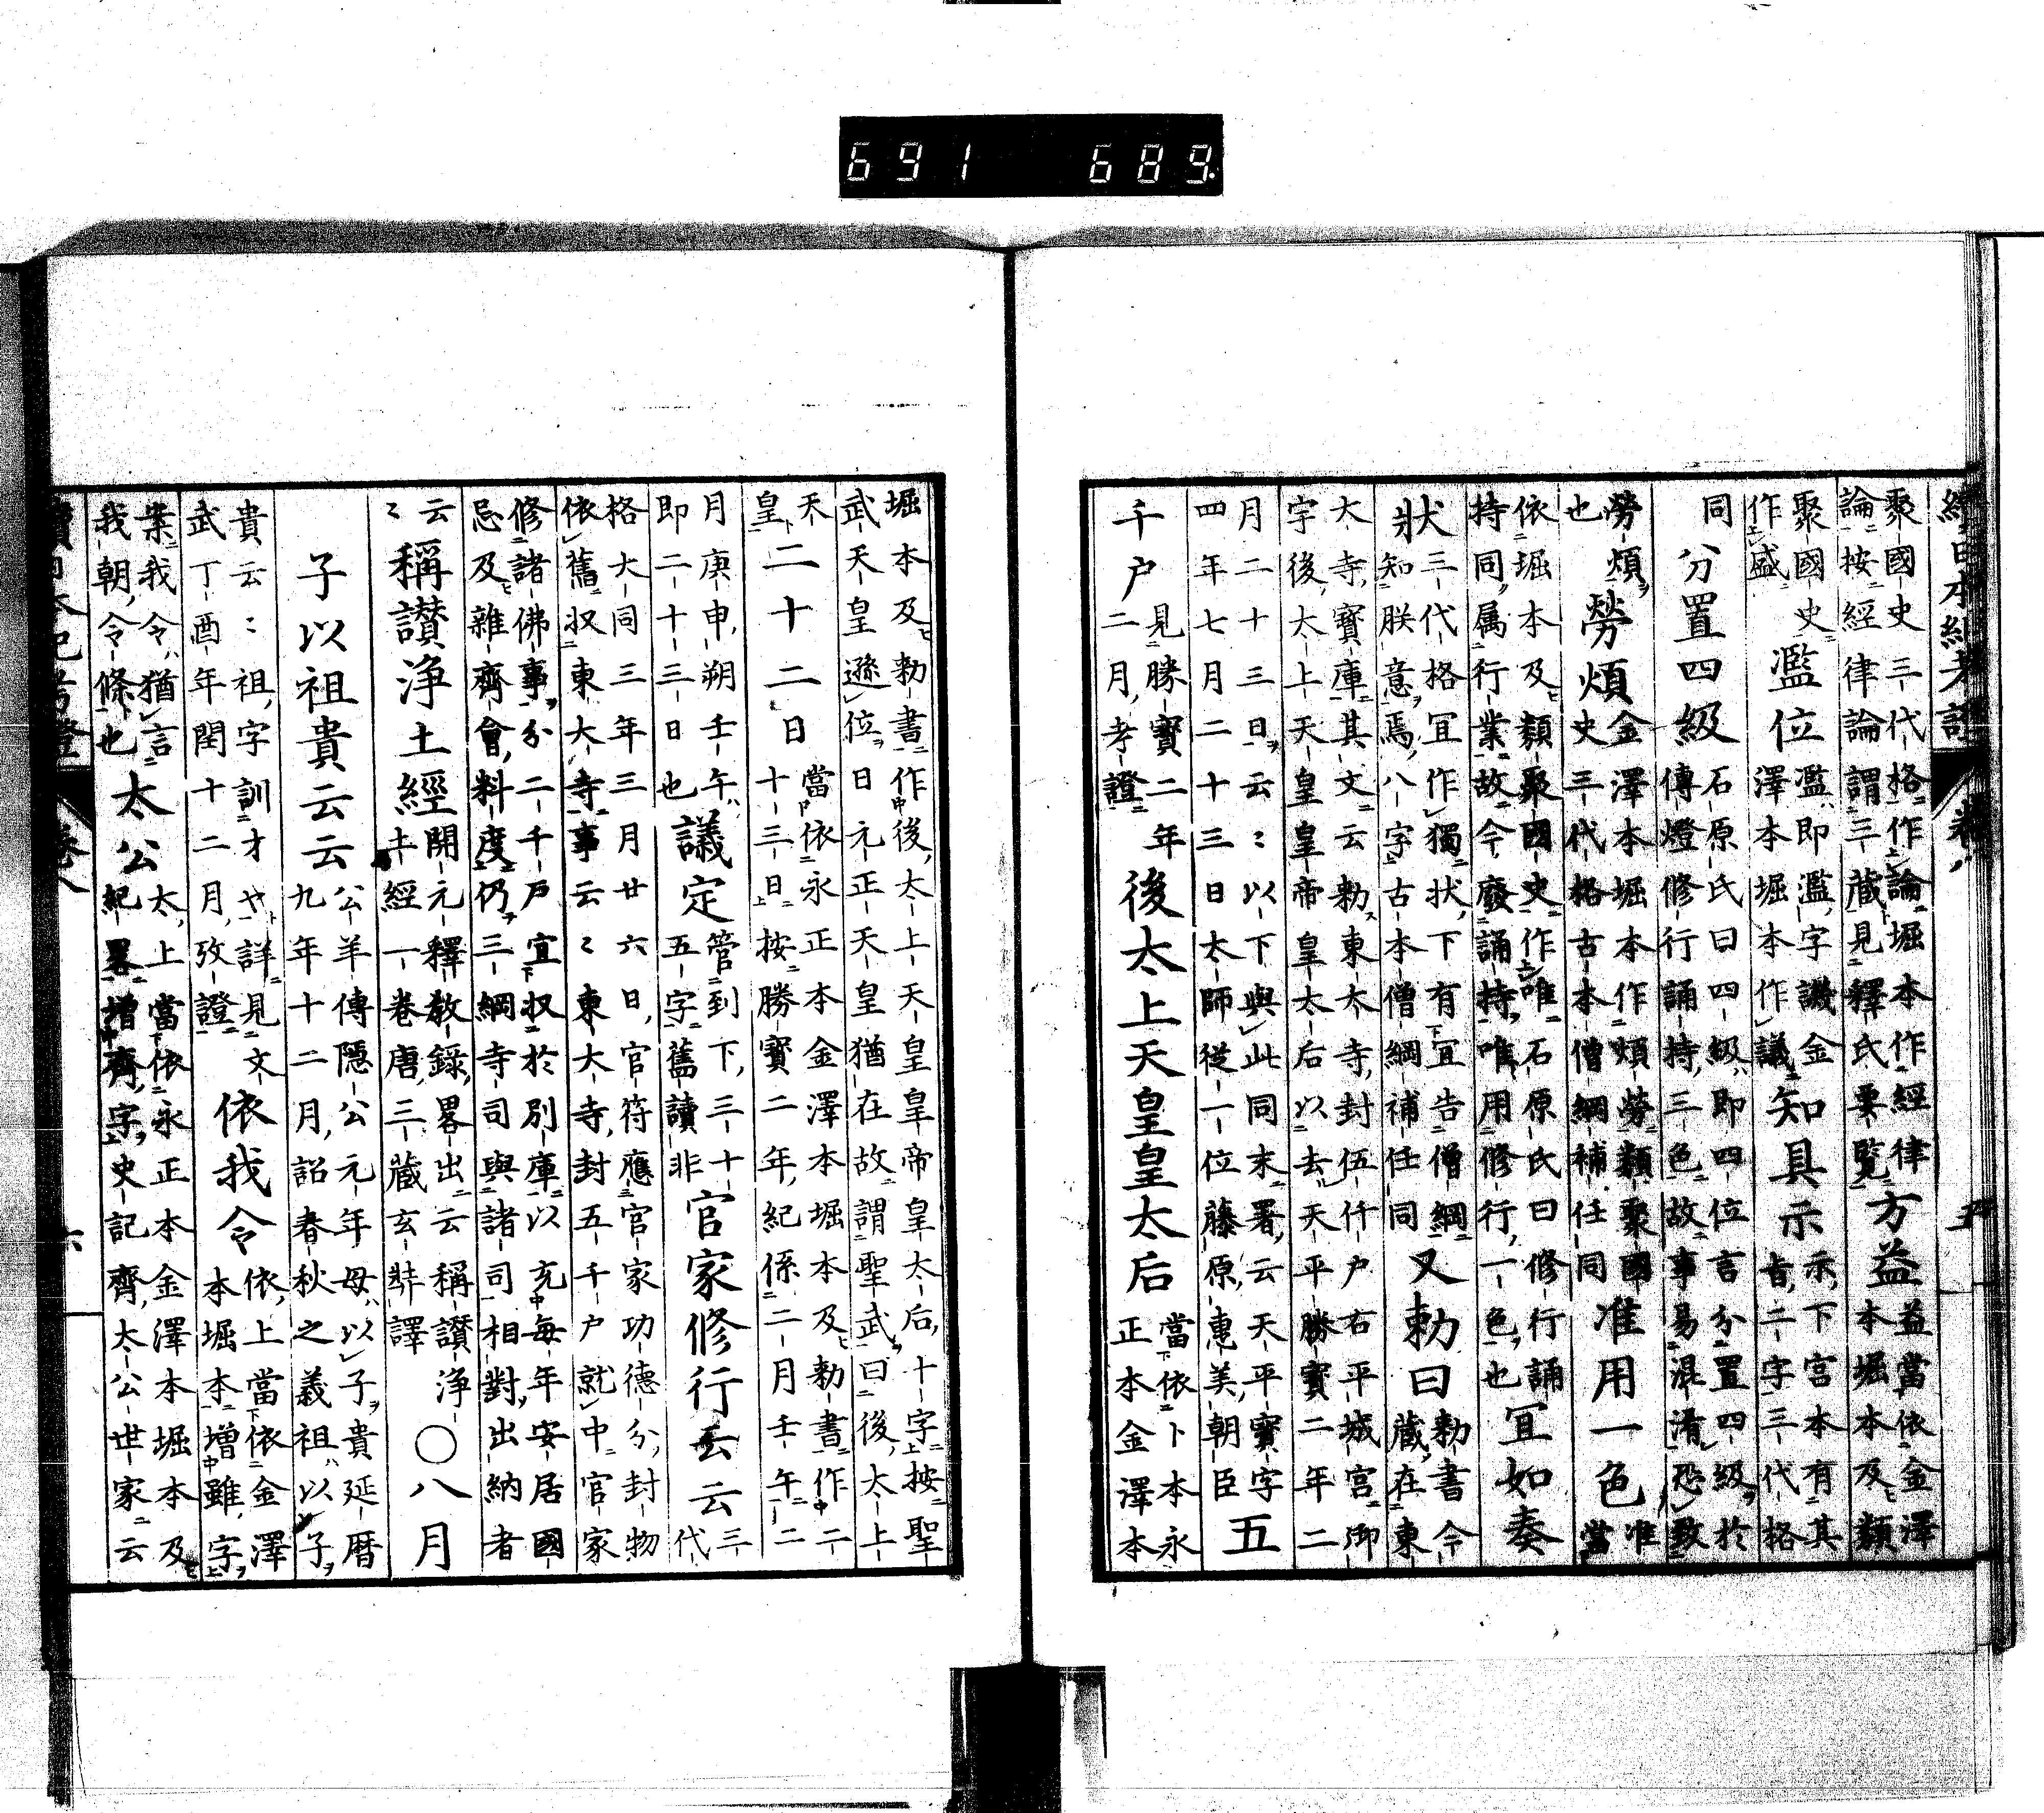 續日本紀考證 卷八 五
聚國史三代格作論堀本作經律
論按經律論謂三藏見釋氏要覽
方益
益當依金澤
本堀本及類
聚國史
作盛
濫位
濫即濫字譏金
澤本堀本作議
知具示
示下宮本有其
旨二字三代格
同
分置四級
石原氏曰四級即四位言分置四級於
傳燈修行誦持三色故事易混淆恐致
勞煩
也
勞煩
金澤本堀本作煩勞類聚國
史三代格古本僧綱補任同
准用一色
准
當
依堀本及類聚國史作唯石原氏曰修行誦
持同属行業故今廢誦持唯用修行一色也
冝如奏
狀
三代格冝作獨狀下有冝告僧綱
知朕意焉八字古本僧綱補任同
又勅曰
勅書今
藏在東
大寺寳庫其文云勅東大寺封伍仟戸右平城宮御
宇後太上天皇皇帝皇太后以去天平勝寳二年二
月二十三日云〻以下與此同末署云天平寳字
四年七月二十三日太師從一位藤原惠美朝臣
五
千戸
見勝寳二年
二月考證
後太上天皇皇太后
當依卜本永
正本金澤本
堀本及勅書作後太上天皇皇帝皇太后十字按聖
武天皇遜位日元正天皇猶在故謂聖武曰後太上
天
皇
二十二日
當依永正本金澤本堀本及勅書作二
十三日按勝寳二年紀係二月壬午二
月庚申朔壬午
即二十三日也
議定
管到下三十
五字舊讀非
官家修行云云
三
代
格大同三年三月廿六日官符應官家功德分封物
依舊収東大寺事云〻東大寺封五千戸就中官家
修諸佛事分二千戸宜収於別庫以充毎年安居國
忌及雜齊會料度仍三綱寺司與諸司相對出納者
云
〻
稱讃浄土經
開元釋教錄畧出云稱讃浄
土經一卷唐三藏玄奘譯
○八月
子以祖貴云云
公羊傳隱公元年母以子貴延暦
九年十二月詔春秋之義祖以子
貴云〻祖字訓才ヤ詳見文
武丁酉年閏十二月攷證
依我令
依上當依金澤
本堀本增雖字
案我令猶言
我朝令條也
太公
太上當依永正本金澤本堀本及
紀畧增齊字史記齊太公世家云
續日本紀考證 卷八 六
691 689